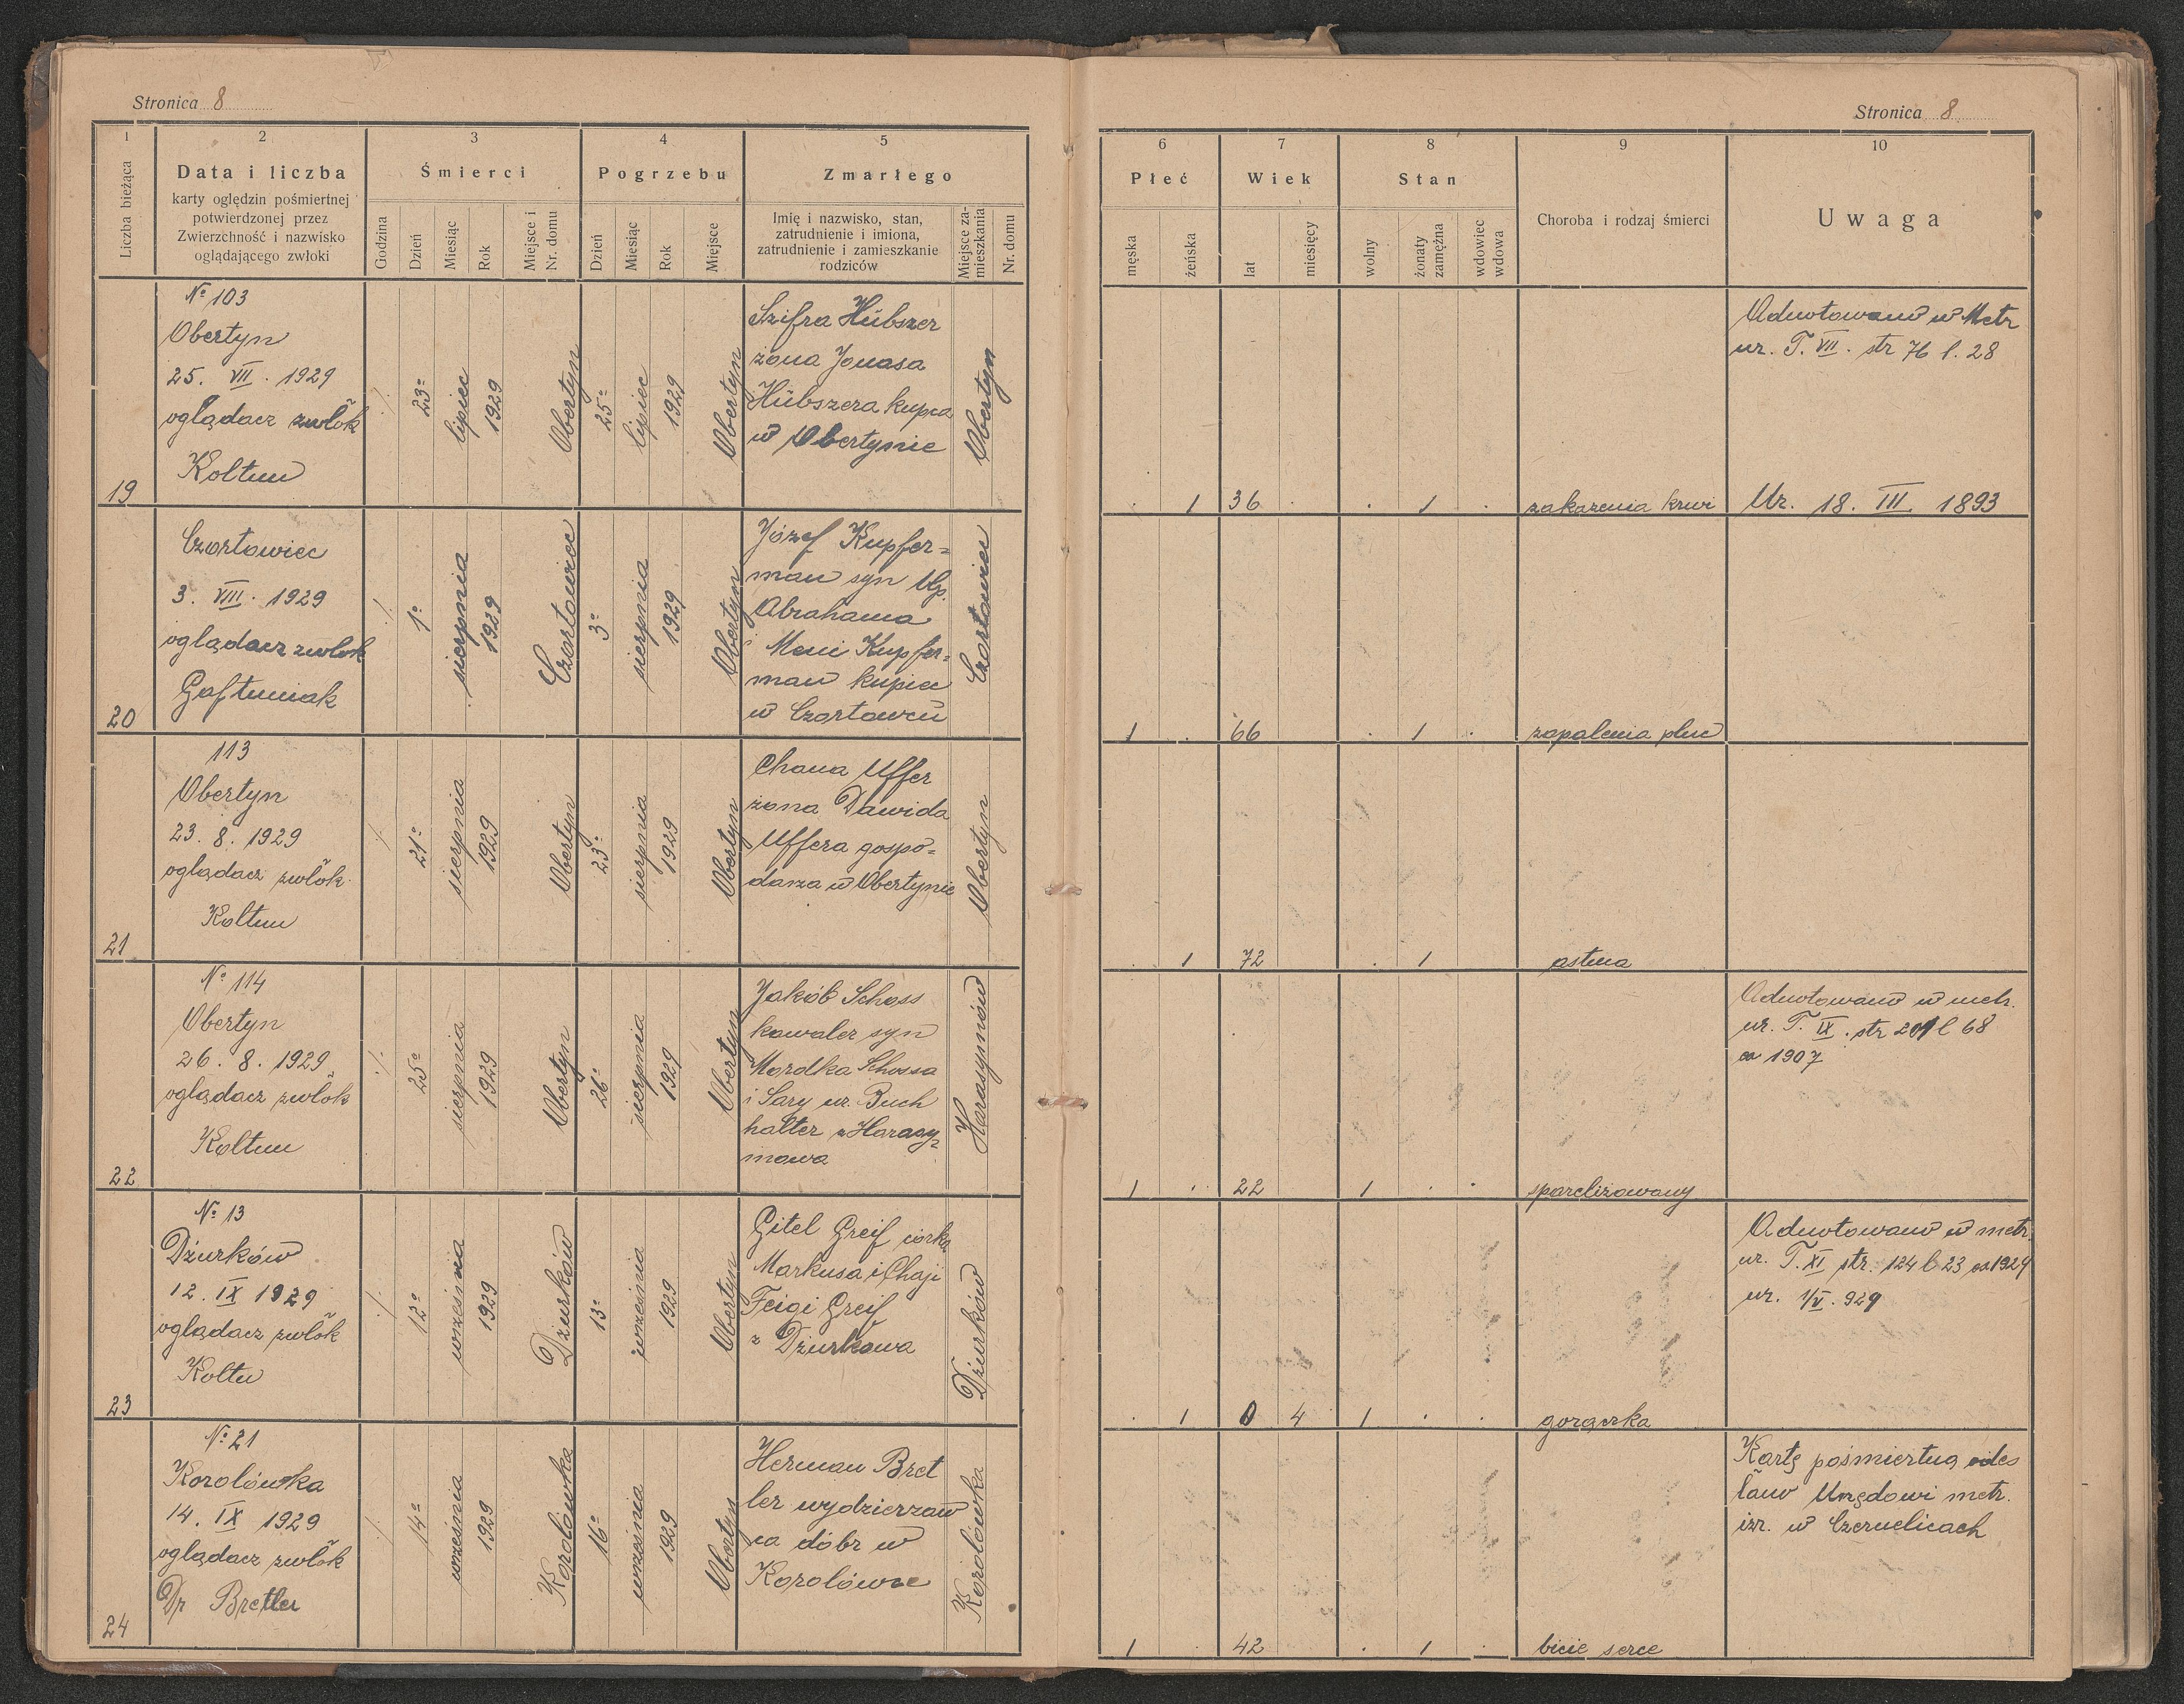 Stronica 8
1 2 3 4 5
Liczba bieżąca
Data i liczba
karty oględzin pośmiertnej
potwierdzonej przez
Zwierzchność i nazwisko
oglądającego zwłoki
Śmierci
Godzina
Dzień
Miesiąc
Rok
Miejsce i
Nr. domu
Pogrzebu
Dzień
Miesiąc
Rok
Miejsce
Zmarłego
Imię i nazwisko, stan,
zatrudnienie i imiona,
zatrudnienie i zamieszkanie
rodziców
Miejsce za-
mieszkania
Nr. domu
19
No 103
Obertyn
25. VII. 1929
oglądacz zwłok
Koltun
23o
lipiec
1929
Obertyn
25o
lipiec
1929
Obertyn
Szifra Hübszer
żona Jonasa
Hübszera kupca
w Obertynie
Obertyn
20
Czortowiec
3. VIII. 1929
oglądacz zwłok
Gaftuniak
1o
sierpnia
1929
Czortowiec
3o
sierpnia
1929
Obertyn
Józef Kupfer=
man syn
Abrahama
i Meni Kupfer=
man kupiec
w Czortowcu
Czortowiec
21
113
Obertyn
23. 8. 1929
oglądacz zwłok
Koltun
21o
sierpnia
1929
Obertyn
23o
sierpnia
1929
Obertyn
Chana Uffer
żona Dawida
Uffera gospo=
darza w Obertynie
Obertyn
22
No 114
Obertyn
26. 8. 1929
oglądacz zwłok
Koltun
25o
sierpnia
1929
Obertyn
26o
sierpnia
1929
Obertyn
Jakób Schoss
kawaler syn
Mordka Schossa
i Sary ur. Buch
halter z Harasy=
mowa
Harasymów
23
No 13
Dżurków
12. IX 1929
oglądacz zwłok
Koltu
12o
wrzesnia
1929
Dżurków
13o
wrzesnia
1929
Obertyn
Gitel Greif córka
Markusa i Chaji
Feigi Greif
z Dżurkowa
Dżurków
24
No 21
Korolówka
14. IX 1929
oglądacz zwłok
Dr Bretler
14o
wrzesnia
1929
Korolówka
16o
wrzesnia
1929
Obertyn
Herman Bret
ler wydzierzaw
ca dóbr w
Korolówce
Korolówka
Stronica 8
6 7 8 9 10
Płeć
męska
żeńska
Wiek
lat
miesięcy
Stan
wolny
żonaty
zamężna
wdowiec
wdowa
Choroba i rodzaj śmierci
Uwaga
Adnotowano w Metr
ur. T. VII. str 76 l. 28
. 1 36 . . 1 . zakazenia krwi Ur. 18. III. 1893
1 . 66 . 1 . zapalenia pluc
. 1 72 . 1 astma
Adnotowano w metr.
ur. T. IX. str 201 l 68
ex 1907
1 . 22 1 . . sparelizowany
Adnotowano w metr.
ur. T. XI str. 124 l 23 ex 1929
ur. 1/V. 929
. 1 0 4 1 . . gorączka
Kartę pośmiertną odes
łano Urzędowi metr.
izr. w Czernelicach
1 . 42 . 1 . bicie serce